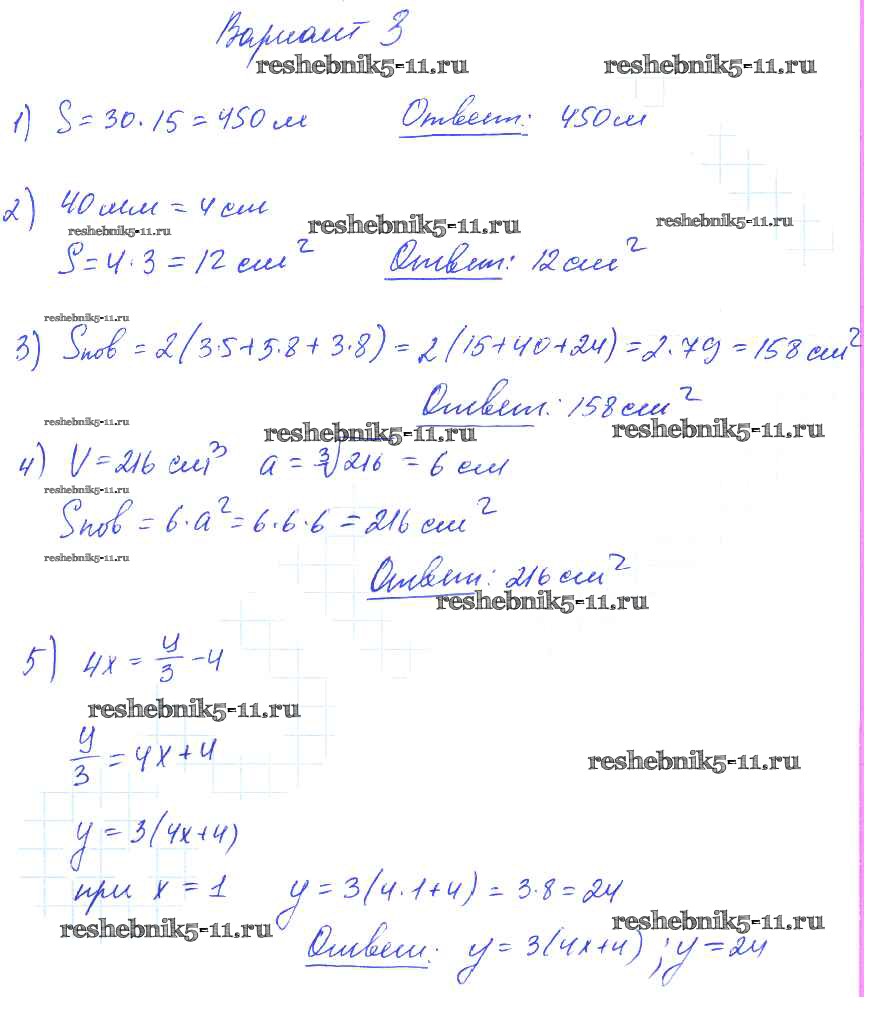 Вариант 3
reshebnik5-11.ru reshebnik5-11.ru
1) S = 30 · 15 = 450 м Ответ: 450 м
2) 40 мм = 4 см
reshebnik5-11.ru reshebnik5-11.ru reshebnik5-11.ru
S = 4 · 3 = 12 см² Ответ: 12 см²
reshebnik5-11.ru
3) Sпов = 2(3·5+5·8+3·8) = 2(15+40+24) = 2·79 = 158 см²
Ответ: 158 см²
reshebnik5-11.ru reshebnik5-11.ru reshebnik5-11.ru
4) V = 216 см³ a = ∛216 = 6 см
reshebnik5-11.ru
Sпов = 6·a² = 6·6·6 = 216 см²
reshebnik5-11.ru
Ответ: 216 см²
reshebnik5-11.ru
5) 4x = y/3 - 4
reshebnik5-11.ru
y/3 = 4x + 4
reshebnik5-11.ru
y = 3(4x+4)
при x = 1 y = 3(4·1+4) = 3·8 = 24
reshebnik5-11.ru reshebnik5-11.ru
Ответ: y = 3(4x+4) ; y = 24